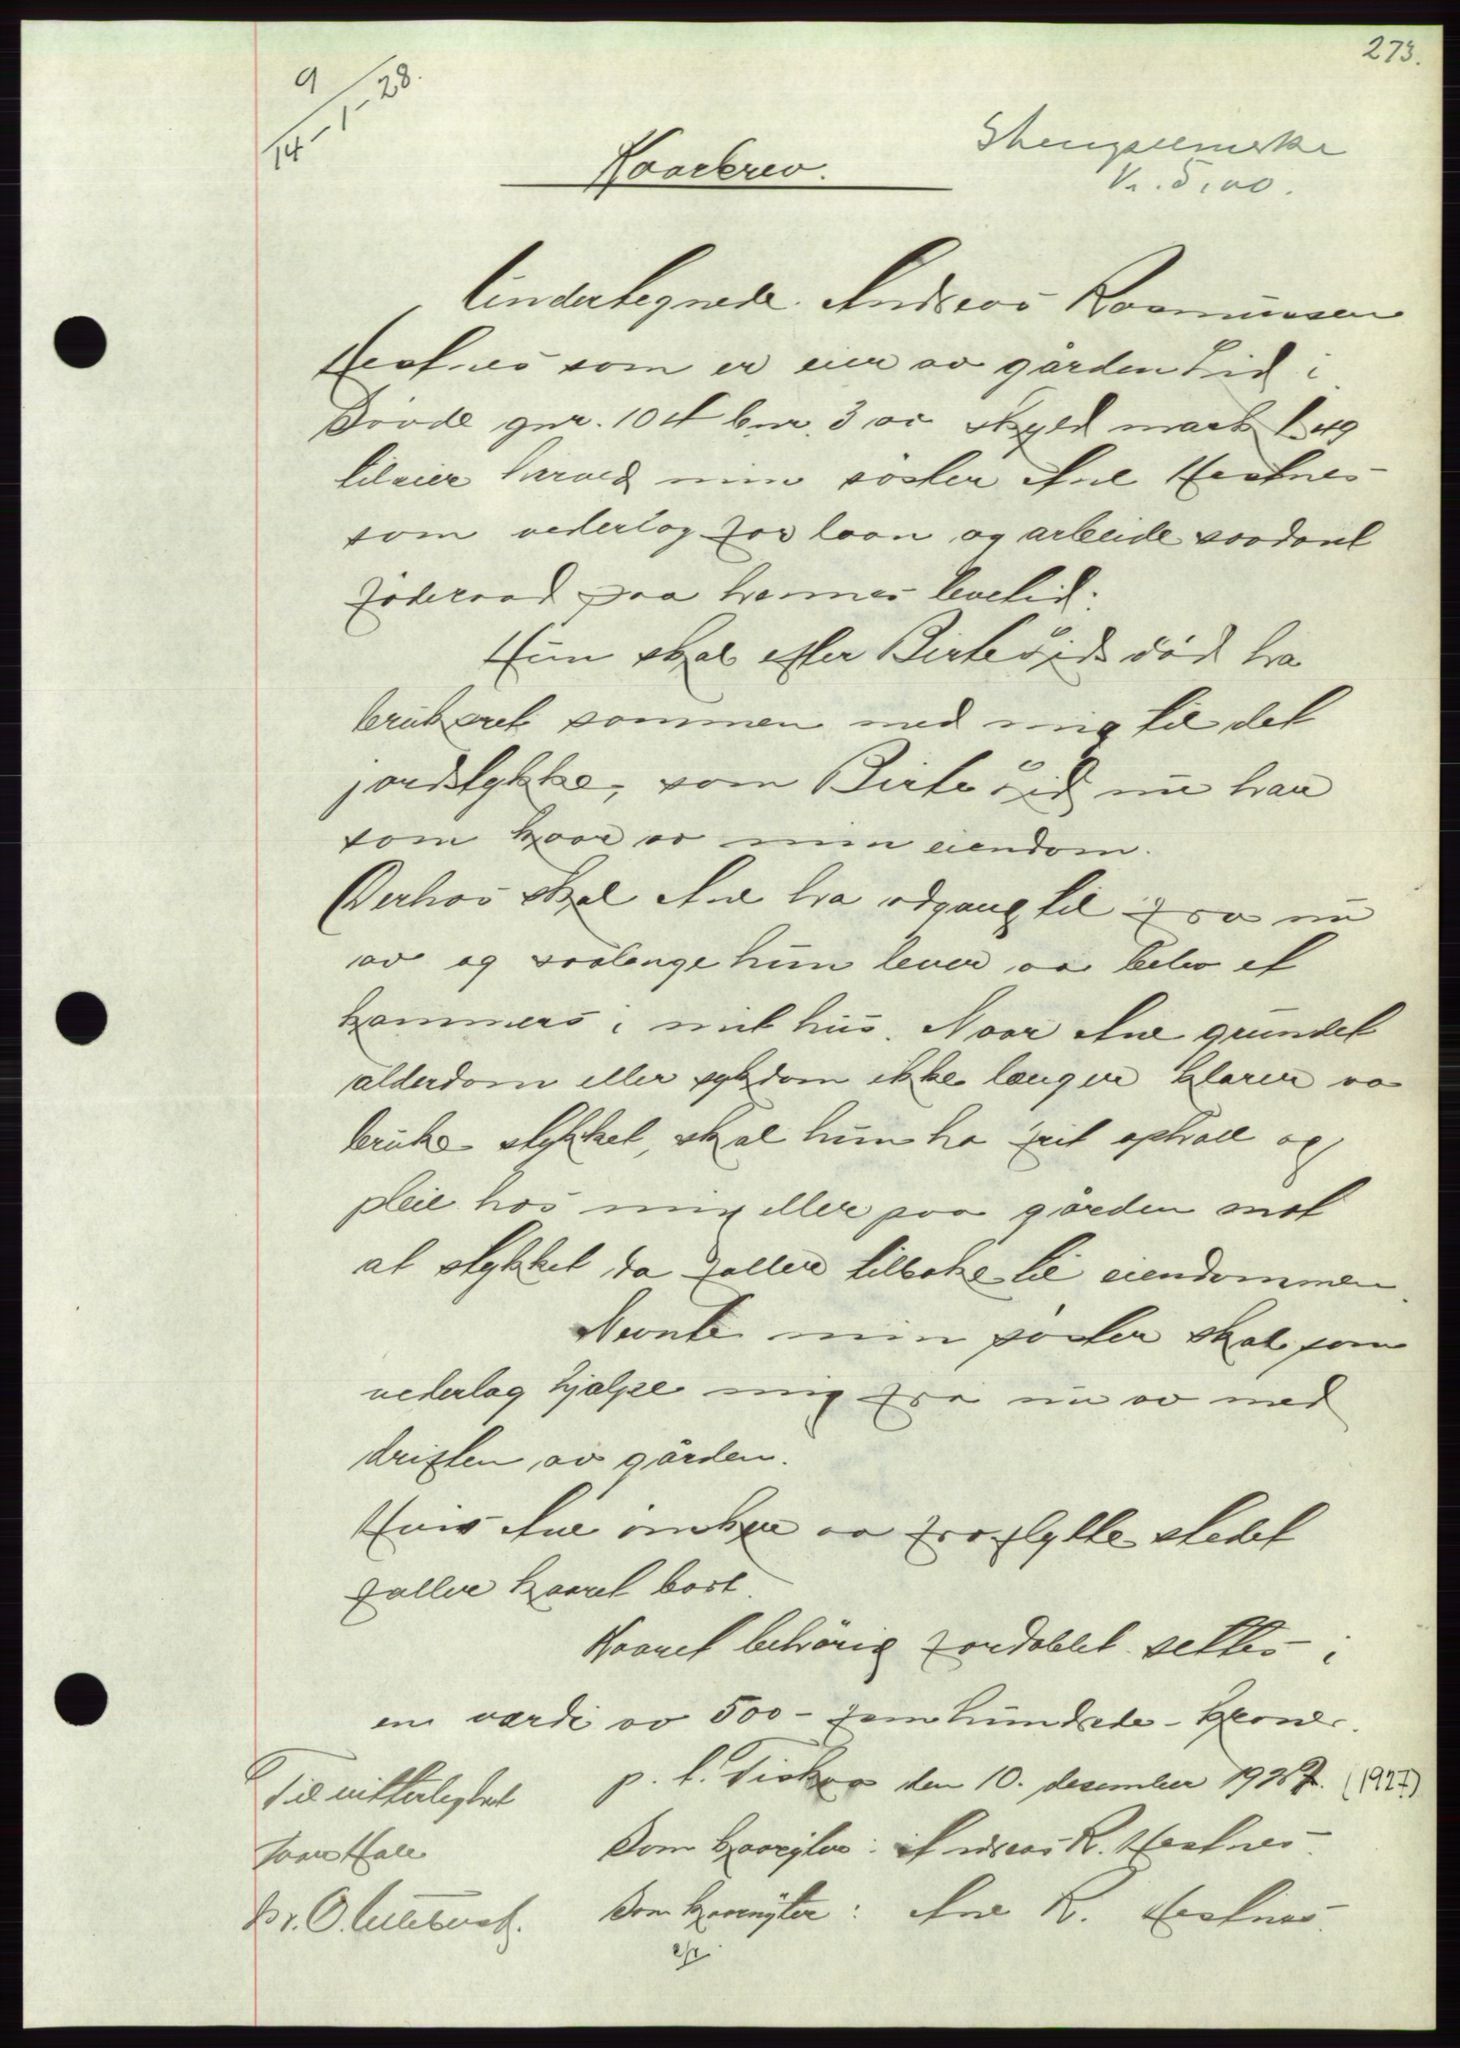 273.
9
14-1-28.
Stempelmerke
Kr. 5,00.
Kaarbrev.
Undertegnede Andreas Rasmussen
Hestnes som er eier av gården Lid i
Dövde gnr. 104 bnr. 3 av skyld mark 1.49
tilsier herved min söster Ane Hestnes
som vederlag for laan og arbeide saadant
föderaad paa hennes levetid:
Hun skal efter Birte Lids död ha
bruksret sammen med mig til det
jordstykke, som Birte Lid nu har
som kaar av min eiendom.
Derhos skal Ane ha adgang til fra nu
av og saalenge hun lever aa bebo et
kammers i mit hus. Naar Ane grundet
alderdom eller sykdom ikke længer klarer aa
bruke stykket, skal hun ha frit ophold og
pleie hos mig eller paa gården mot
at stykket da faller tilbake til eiendommen.
Nevnte min söster skal som
vederlag hjælpe mig fra nu av med
driften av gården.
Hvis Ane önsker aa fraflytte stedet
faller kaaret bort.
Kaaret behörig fordoblet settes i
en værdi av 500 - femhundrede - kroner.
p. t. Fiskaa den 10. desember 1927. (1927)
Til vitterlighet
Som kaaryter: Andreas R. Hestnes.
Som kaarnyter: Ane R. Hestnes.